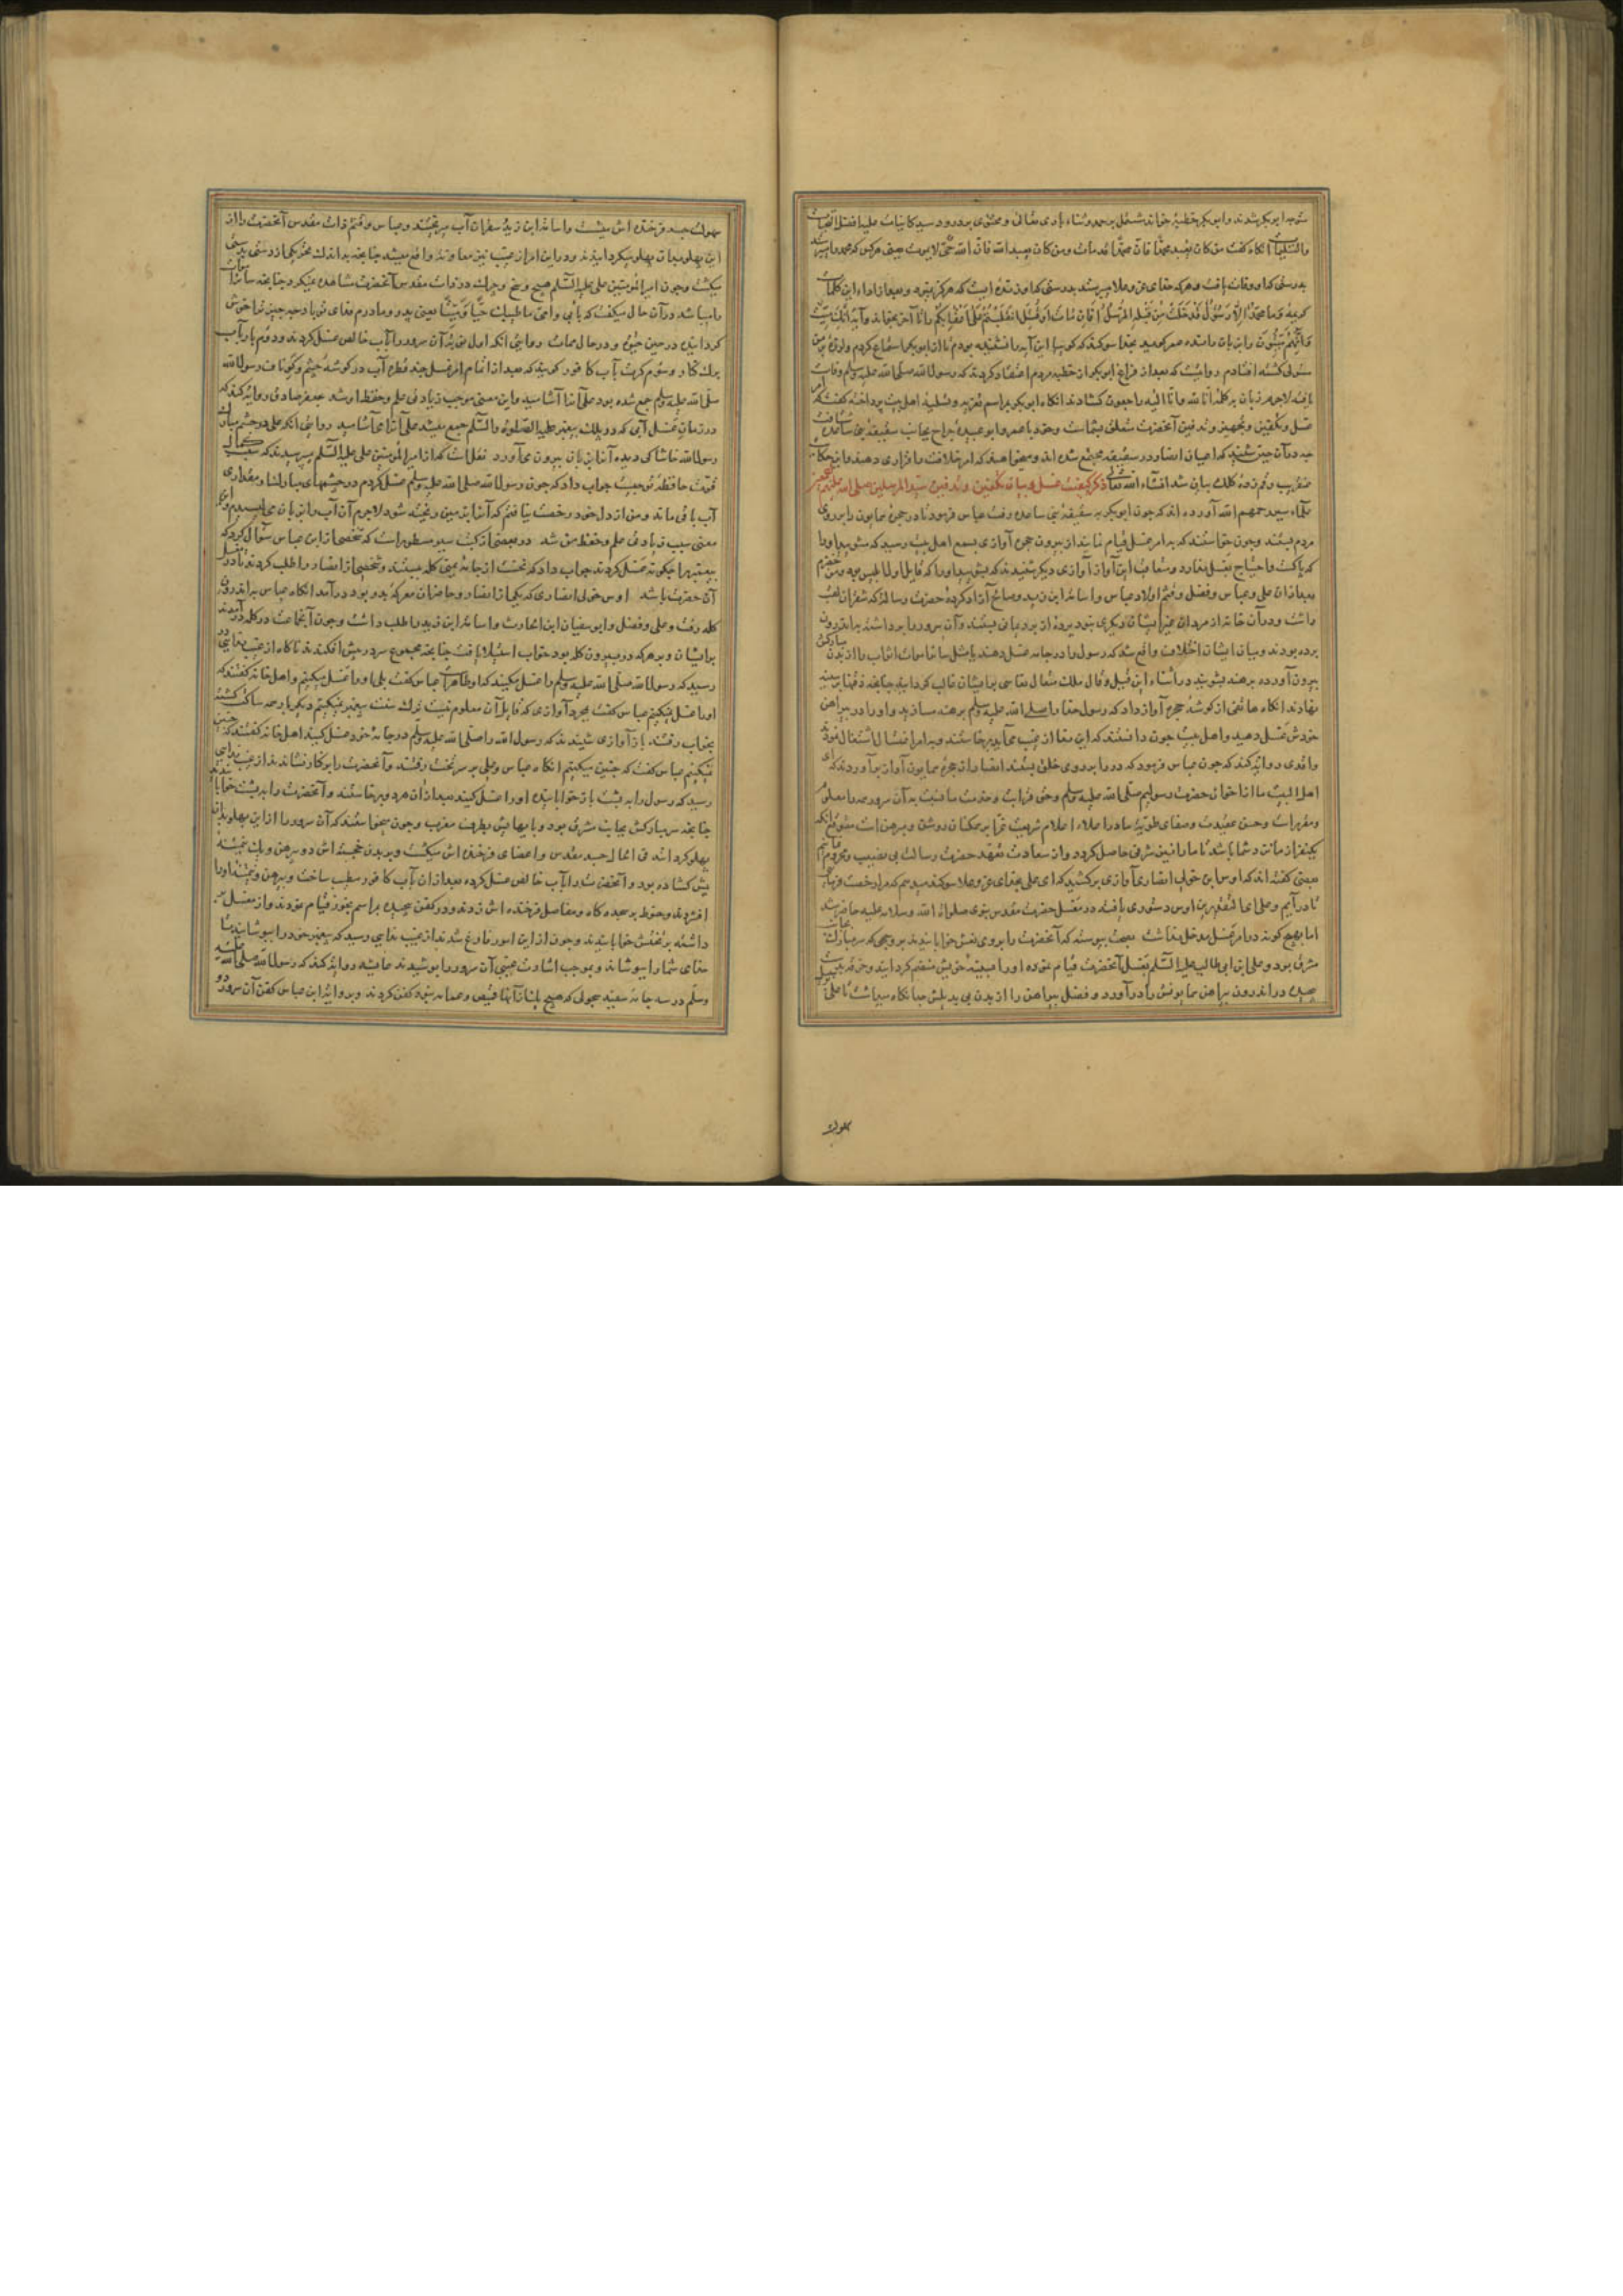 متوجه ابوبکر شدند و ابوبکر خطبهٔ خواند مشتمل بر حمد و ثناء باری تعالی و محتوی بر درود سید کاینات علیه افضل الصلوات
والتسلیمات آنکاه کفت من کان یعبد محمدا فان محمدا قد مات ومن کان یعبد الله فان الله حی لایموت یعنی هرکس که محمد را
بدرستی که او وفات یافت و هرکه خدای عز و علا میپرستد بدرستی که او زنده است که هرکز نمیرد و بعد از اداء این کلمات
کریمهٔ وما محمد الا رسول قد خلت من قبله الرسل افان مات او قتل انقلبتم علی اعقابکم را تا آخر بخواند و آیه انک میت
وانهم میتون را بر زبان راند عمر کوید بخدا سوکند که کویا این آیه را نشنیده بودم تا از ابوبکر استماع کردم
روایتست که بعد از فراغ ابوبکر از خطبه مردم اعتقاد کردند که رسول الله صلی الله علیه وسلم وفات
یافته لاجرم زبان بر کلمه انا لله وانا الیه راجعون کشادند آنکاه ابوبکر مراسم تعزیه و تسلیه اهل بیت پرداخته کفت که امر
غسل و تکفین و تجهیز و تدفین آنحضرت متعلق بشماست و خود با عمر و ابو عبیده جراح بجانب سقیفه بنی ساعده شتافت
چه در آن حین شنید که اعیان انصار در سقیفه مجتمع شده اند و میخواهند که امر خلافت را قراری دهند و این حکایت
عنقریب رقم زدهٔ کلک بیان شد انشاء الله تعالی ذکر کیفیت غسل و بیان تکفین و تدفین سید المرسلین صلی الله علیه
علماء سیر رحمهم الله آورده اند که چون ابوبکر به سقیفه بنی ساعده رفت عباس فرمود تا در حجره همایون را بر روی
مردم ببندند و چون خواستند که به امر غسل قیام نمایند از بیرون حجره آوازی بسمع اهل بیت رسید که مشویید او را
که پاکست و احتیاج بغسل ندارد و متعاقب این آواز آوازی دیکر شنیدند که بشویید او را که قایل اول ابلیس بود و من خضرم
بعد از آن علی و عباس و فضل و قثم اولاد عباس و اسامه ابن زید و صالح آزاد کردهٔ حضرت رسالت که شقران لقب
داشت و در آن خانه از مردان غیر ایشان دیکری نبود
برده بودند و میان ایشان اختلاف واقع شد که رسول را در جامه غسل دهند یا مثل سایر اموات اثواب را از بدن مبارکش
بیرون آورده برهنه بشویند در اثناء این قیل و قال ملک متعال نعاسی بر ایشان غالب کردانید چنانچه ذقنها بر سینه
نهادند آنکاه هاتفی از کوشهٔ حجره آواز داد که رسول خدا را صلی الله علیه وسلم برهنه مسازید و او را در پیراهن
خودش غسل دهید و اهل بیت چون دانستند که این ندا از غیب می‌آید برخاستند و بدان امر امتثال اشتغال نمودند
واقدی روایت کند که چون عباس فرمود که در را بر روی خلق ببستند انصار از حجره همایون آواز برآوردند که ای
اهل البیت ما اخوال حضرت رسولیم صلی الله علیه وسلم و حق قرابت و خدمت ما نسبت به آن سرور همه را معلوم
و مقررات و حسن عقیدت و صفای طویهٔ ما در اعلاء اعلام شریعت غرا بر همکنان روشن و مبرهن است متوقع آنکه
یکنفر از ما نزد شما باشد تا ما را نیز شرفی حاصل کردد و از سعادت تعهد حضرت رسالت بی نصیب و محروم نمانیم
بعضی کفته اند که اوس ابن خولی انصاری آوازی برکشید که ای علی بخدای عز و علا سوکند میدهم که مرا رخصت فرمای
تا درآیم و علی اوس دستوری یافته در مغسل حضرت مقدس نبوی صلوات الله وسلامه علیه حاضر شد
اما بهیچ کونه در امر غسل مدخل نداشت بصحت پیوسته که آنحضرت را بر روی نعش خوابانیدند بر وجهی که سر مبارک بجانب
مشرق بود و علی ابن ابی طالب علیه السلام بغسل آنحضرت قیام نموده او را بسینهٔ خویش منضم کردانید و خرقه بر دست
پیچیده در اندرون پیراهن همایونش درآورد و فضل پیراهن را از بدن بی بدیلش جدا نکاه میداشت تا علی
کلوک
بسهولت جسد فرخنده اش میشست و اسامه ابن زید و شقران آب میریختند و عباس و قثم ذات مقدس آنحضرت را از
این پهلو بدان پهلو میکردانیدند و در این امر از غیب نیز معاونت واقع میشد چنانچه به اندک محرکی از دستی بدستی
میکشت و چون امیر المؤمنین علی علیه السلام هیچ وسخ و چرک در ذات مقدس آنحضرت مشاهده نمیکرد چنانچه سایر اموات
را میباشد در آن حال میکفت که بابی و امی ما طیبک حیا ومیتا یعنی پدر و مادرم فدای تو باد چه چیز ترا خوش
کردانیده در حین حیوة و در حال ممات روایتی آنکه اول مرتبه آن سرور را بآب خالص غسل کردند و دوم بار بآب
برک کنار و سوم کرت بآب کافور کویند که بعد از اتمام امر غسل چند قطره آب در کوشهٔ چشم و کو ناف رسول الله
صلی الله علیه وسلم جمع شده بود علی آنرا آشامید و این معنی موجب زیادتی علم و حفظ او شد جعفر صادق روایت کند که
در زمان غسل آبی که در پلک پیغمبر علیه الصلوة والسلام جمع میشد علی آنرا می‌آشامید روایتی آنکه علی در چشم مبارک
رسول الله خاشاکی دیده آنرا بزبان بیرون می‌آورد نقلست که از امیر المؤمنین علی علیه السلام پرسیدند که سبب کمال
قوت حافظهٔ تو چیست جواب داد که چون رسول الله صلی الله علیه وسلم غسل کردم در چشمهای مبارکش مقداری
آب باقی ماند و من از دل خود رخصت نیافتم که آنرا بر زمین ریخته شود لاجرم آن آب را بزبان
معنی سبب زیادتی علم و حفظ من شد در بعضی از کتب سیر مسطور است که شخصی از ابن عباس سؤال کرد که
پیغمبر را چکونه غسل کردند جواب داد که نخست از جامه یمنی کله ببستند و شخصی از انصار را طلب کردند
آن حضرت باشد اوس خولی انصاری که یکی از انصار و حاضران معرکهٔ بدر بود درآمد آنکاه عباس به اندرون
کله رفت و علی و فضل و ابو سفیان ابن الحارث و اسامه ابن زید را طلب داشت و چون آنجماعت در کله درآمدند
بر ایشان و بر هرکه در بیرون کله بود خواب استیلا یافت چنانچه مجموع سر در پیش افکندند ناکاه از غیب ندایی در
رسید که رسول الله صلی الله علیه وسلم را غسل مکنید که او طاهر است عباس کفت بلی او را غسل میکنیم و اهل خانه کفتند که
او را غسل نمیکنیم عباس کفت بمجرد آوازی که قایل آن معلوم نیست ترک سنت پیغمبر نمیکنیم دیکر بار همه ساکت کشته
بخواب رفتند باز آوازی شنیدند که رسول الله را صلی الله علیه وسلم در جامهٔ خود غسل کنید اهل خانه کفتند که چنین
نمیکنیم عباس کفت که چنین میکنیم آنکاه عباس و علی بر سر تخت رفتند و آنحضرت را بر کنار نشاندند از غیب ندایی
رسید که رسول را به پشت باز خوابانیده او را غسل کنید بعد از آن هر دو برخاستند و آنحضرت را به پشت خوابانیدند
چنانچه سر مبارکش بجانب مشرق بود و پایهایش بطرف مغرب و چون میخواستند که آن سرور را از این پهلو بدان
پهلو کردانند فی الحال جسد مقدس و اعضای فرخنده اش میکشت و بر بدن خجسته اش دو پیرهن و یک
پیش کشاده بود و آنحضرت را بآب خالص غسل کرده بعد از آن بآب کافور مطیب ساخت و پیرهن
افشردند و حنوط بر سجده کاه و مفاصل فرخنده اش زدند و در کفن پیچیده مراسم بخور قیام نمودند و از مغتسل بر
داشته بر تختش خوابانیدند و چون از این امور فارغ شدند از غیب ندایی رسید که پیغمبر خود را بپوشانید تا
خدای شما را بپوشاند و بموجب اشارت غیبی آن سرور را بپوشیدند عایشه روایت کند که رسول الله صلی الله علیه
وسلم در سه جامهٔ سفید سحولی که هیچ یک از آنها قمیص و عمامه نبود کفن کردند و بروایت ابن عباس کفن آن سرور دو